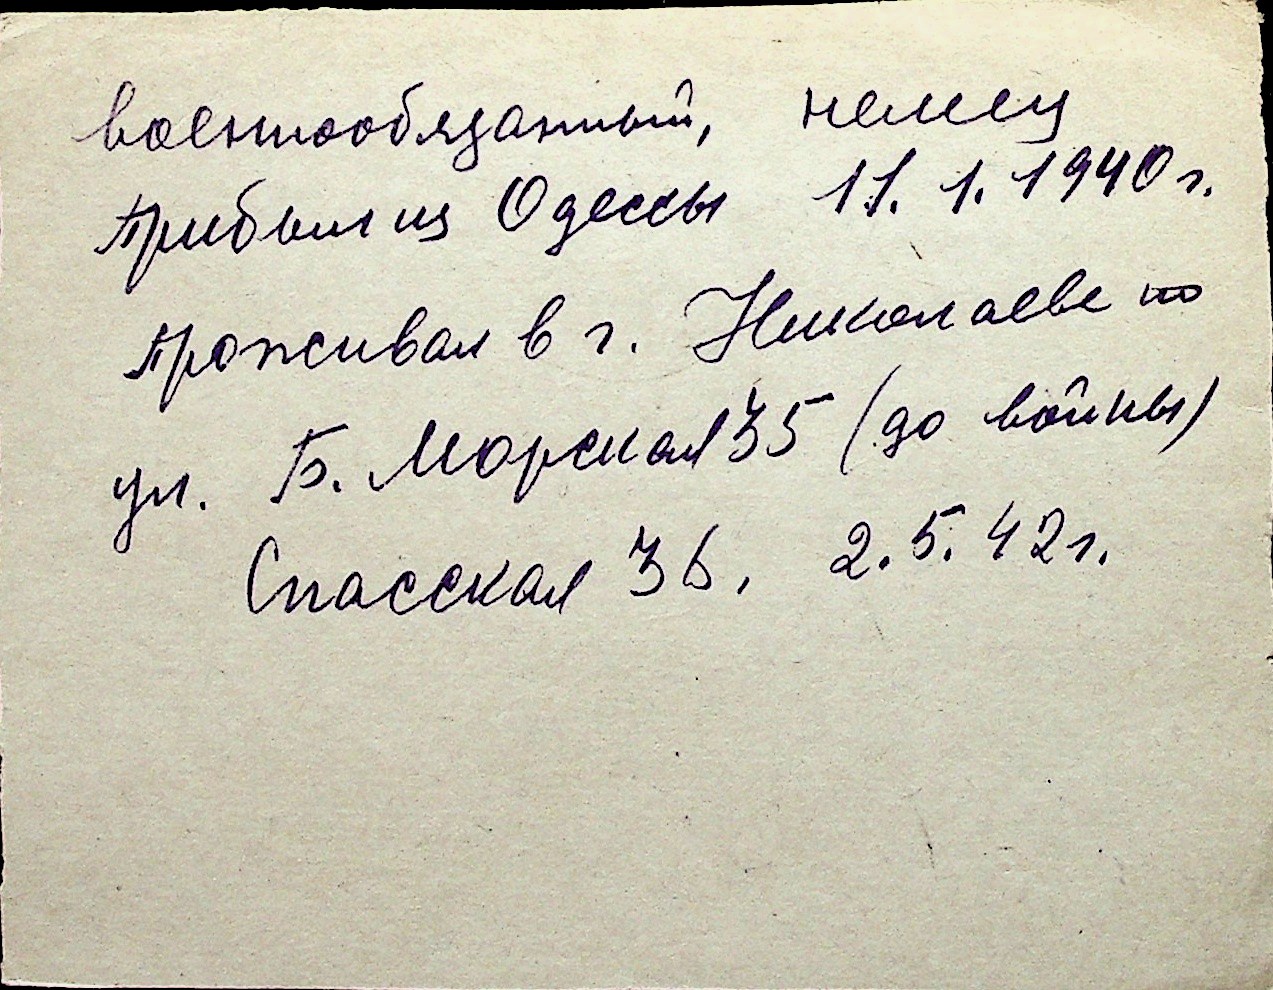 военнообязанный, немец
прибыл из Одессы 11.1.1940 г.
проживал в г. Николаеве по
ул. Б. Морская 35 (до войны)
Спасская 36, 2.5.42 г.